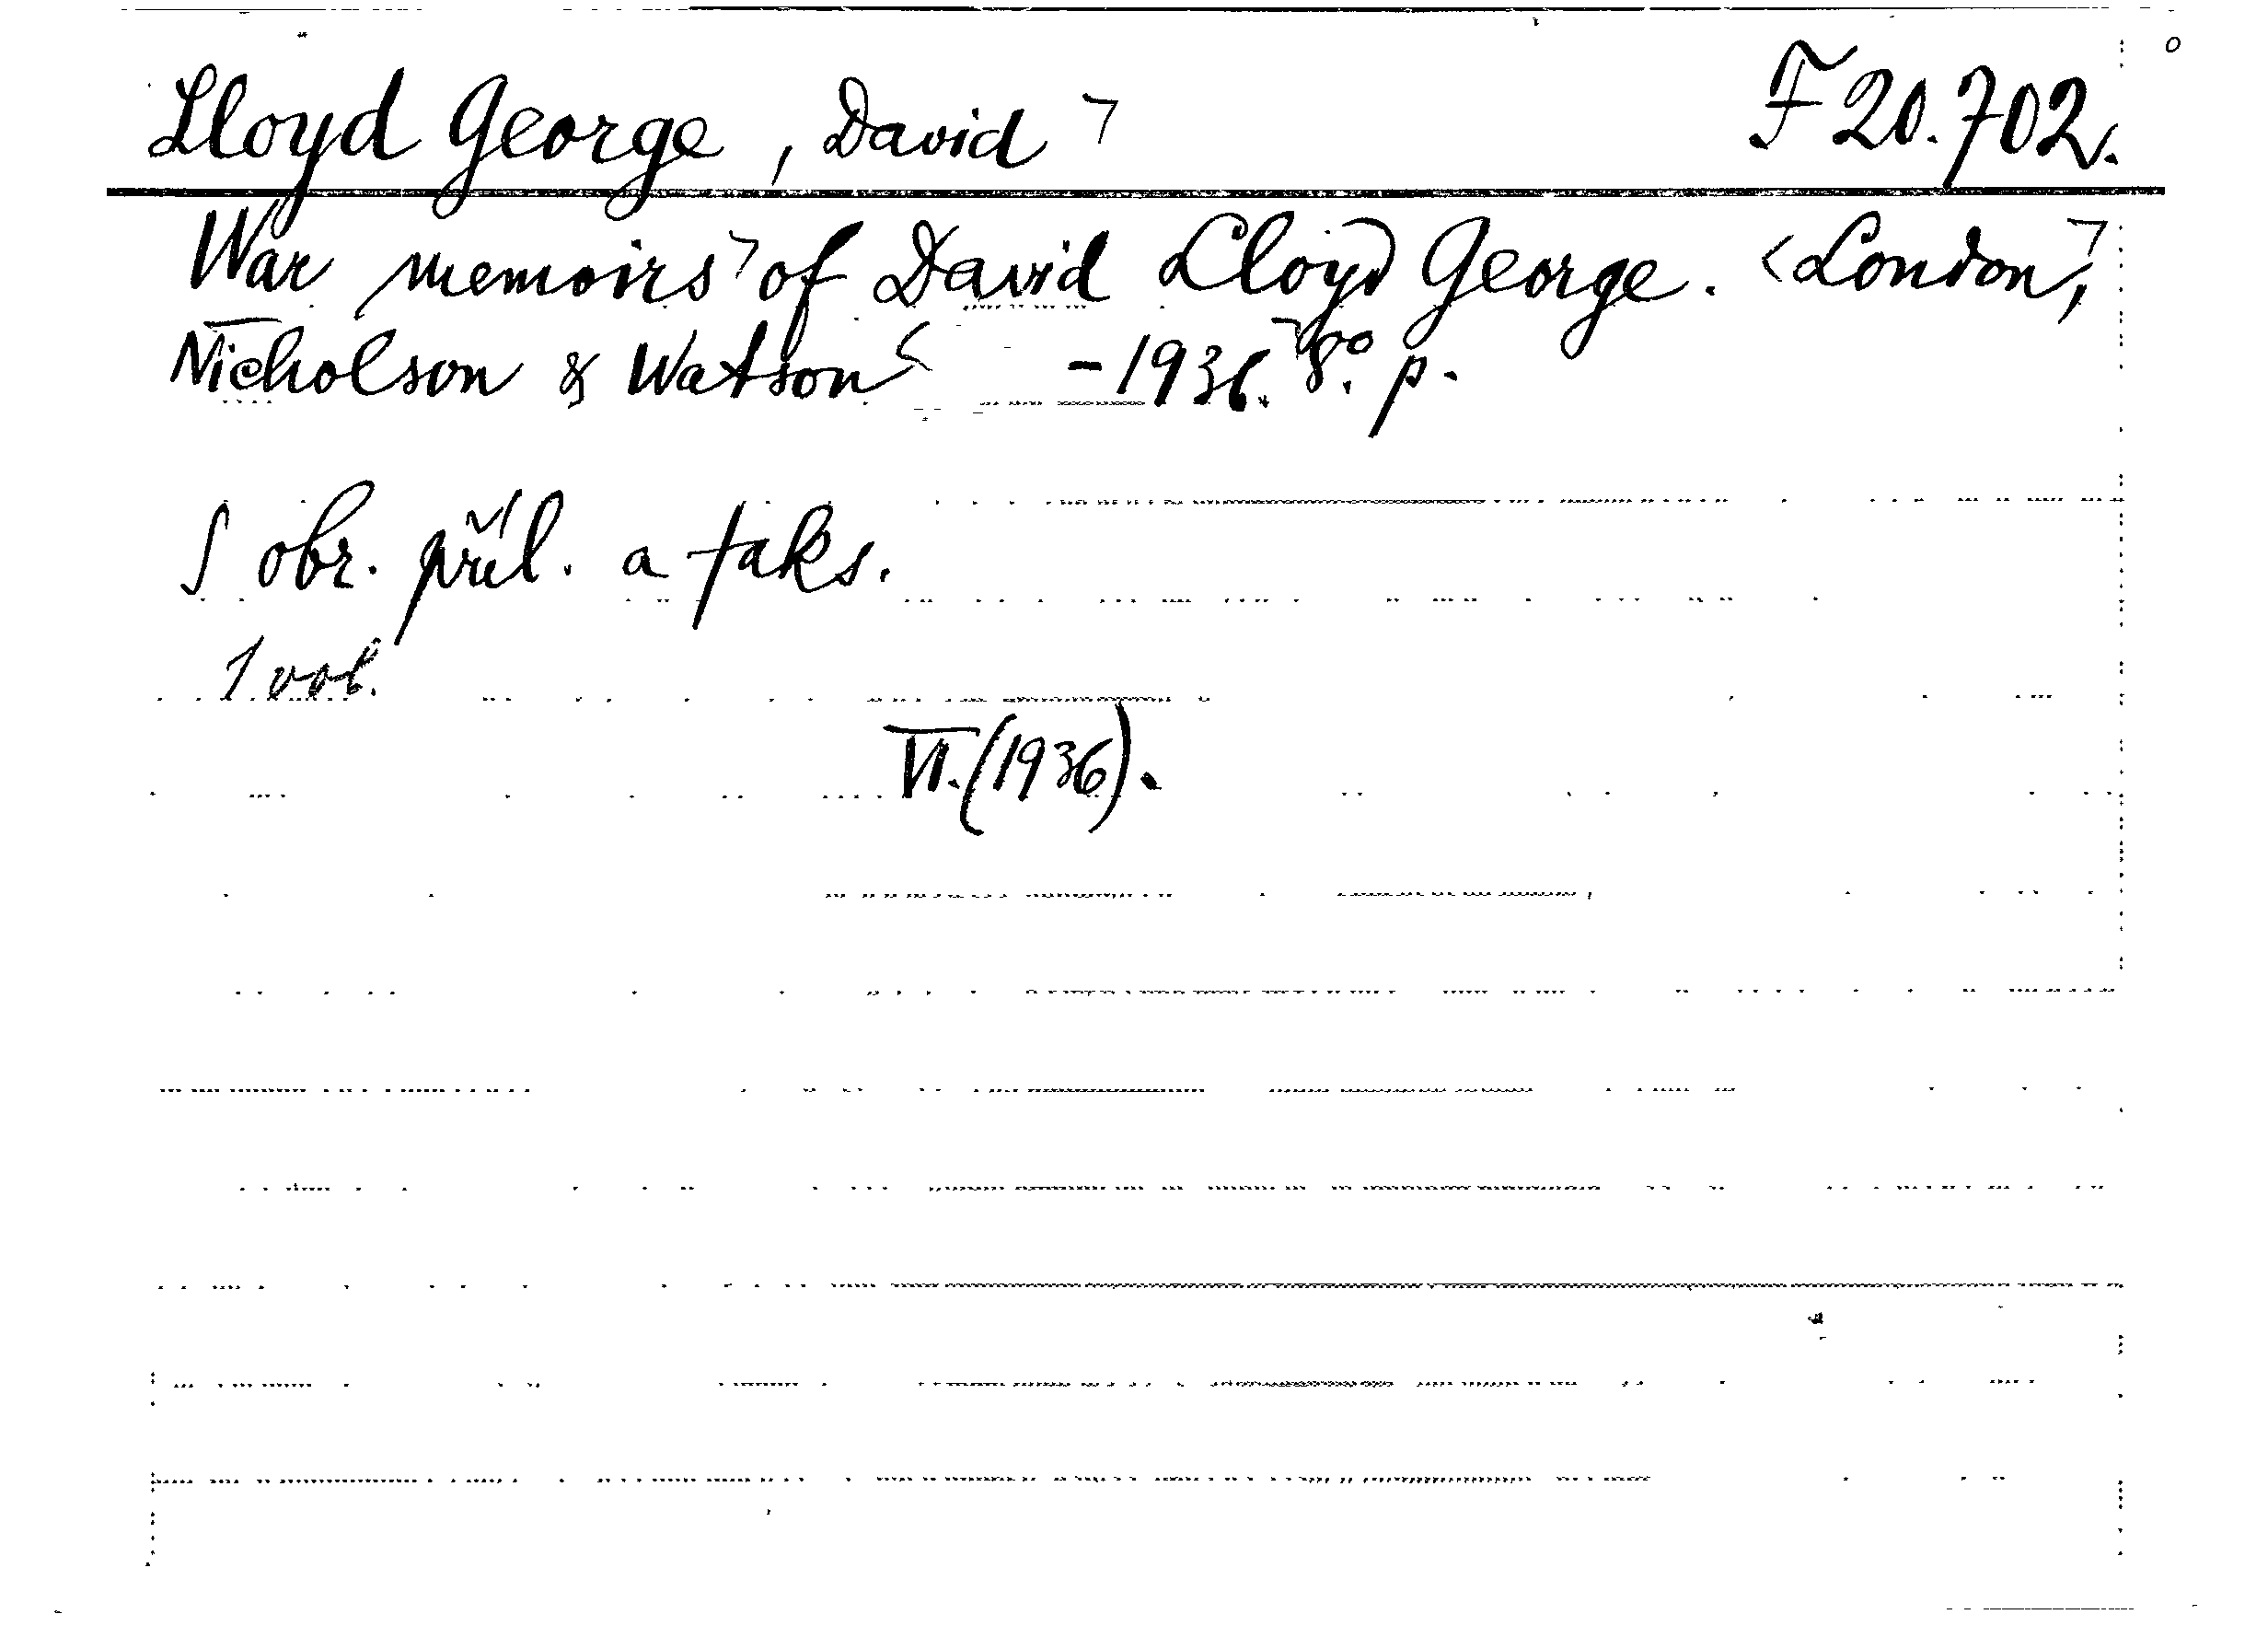 Lloyd George, David ⌝ F 20.702.
War memoirs ⌝ of David Lloyd George. <London, ⌝
Nicholson & Watson < -1936. ⌝ 8°. p.
S obr. příl. a faks.
1 vol.
VI. (1936).